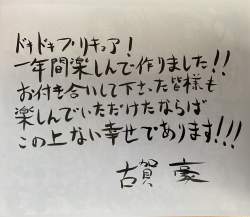 ドキドキプリキュア!
一年間楽しんで作りました!!
お付き合いして下さった皆様も
楽しんでいただけたならば
この上ない幸せであります!!!
古賀 豪